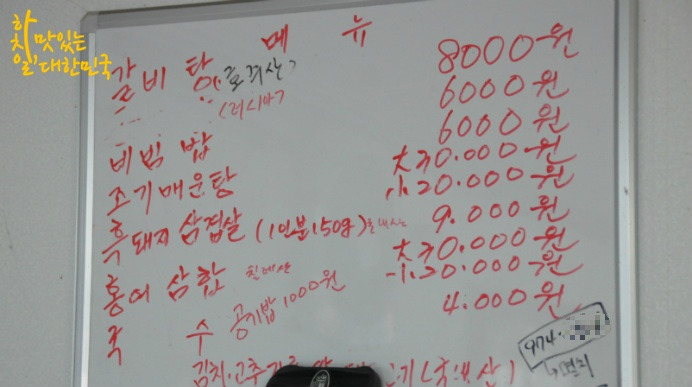 하
치 맛있는
일, 대한민국
메 뉴
갈비탕 8000원
6000원
비빔밥 6000원
조기매운탕 大30.000원
小20.000원
흑돼지삼겹살 (1인분150g) 9.000원
홍어 삼합 칠레산 大30.000원
小20.000원
국 수 공기밥 1000원 4.000원
김치.고추가루
974.
멸치